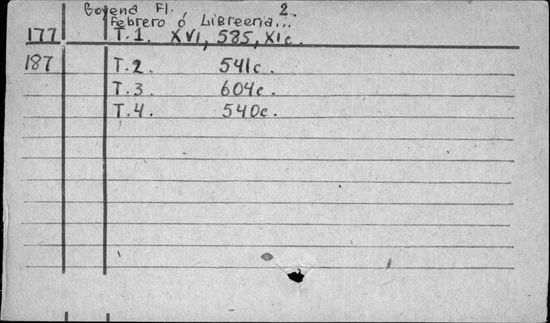 Goyena Fl., 2.
Febrero ó Libreria...
177 T.1. XVI, 585, XI c.
187 T.2. 541c.
T.3 604c.
T.4. 540c.